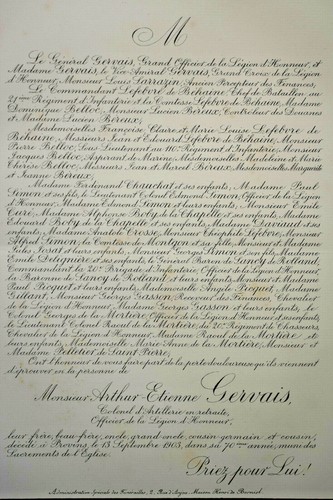 M
Le Général Gervais, Grand Officier de la Légion d'Honneur, et
Madame Gervais, le Vice-Amiral Gervais, Grand Croix de la Légion
d'Honneur, Monsieur Louis Sarrazin Ancien Percepteur des Finances,
Le Commandant Lefebvre de Béhaine Chef de Bataillon au
21ème Régiment d'Infanterie et la Comtesse Lefebvre de Béhaine, Madame
Dominique Belloc, Monsieur Lucien Béreux, Contrôleur des Douanes
et Madame Lucien Béreux;
Mesdemoiselles Françoise, Claire et Marie-Louise Lefebvre de
Béhaine, Messieurs Jean et Edouard Lefebvre de Béhaine, Monsieur
Pierre Belloc, Sous Lieutenant au 116e Régiment d'Infanterie, Monsieur
Jacques Belloc, Aspirant de Marine, Mesdemoiselles Madeleine et Marie
Thérèse Belloc, Messieurs Jean et Marcel Béreux, Mesdemoiselles Marguerite
et Jeanne Béreux;
Madame Ferdinand Chauchat et ses enfants, Madame Paul
Simon et ses fils, le Lieutenant Colonel Edmond Simon, Officier de la Légion
d'Honneur, Madame Edmond Simon et leurs enfants, Monsieur Emile
Curé, Madame Alphonse Boby de la Chapelle et ses enfants, Madame
Edouard Boby de la Chapelle et ses enfants, Madame et ses
enfants, Madame Anatole Crosse, Monsieur Théophile Lefebvre, Monsieur
Alfred Simon, la Comtesse de Montgon et sa fille, Monsieur et Madame
et leurs enfants, Monsieur Georges Simon et ses fils, Madame
Emile Delignière et ses enfants, le Général Baron de Sancy de Rolland,
Commandant la 20e Brigade de Infanterie, Officier de la Légion d'Honneur,
la Baronne de Sancy de Rolland et leurs enfants, Monsieur et Madame
Paul Picquet et leurs enfants, Mademoiselle Angèle Picquet, Madame
Gaillant, Monsieur Georges Gasson, Receveur des Finances, Chevalier
de la Légion d'Honneur, Madame Georges Gasson et leurs enfants, le
Colonel Georges de la Mortière, Officier de la Légion d'Honneur, et ses enfants
le Lieutenant Colonel Raoul de la Mortière du 20e Régiment de Chasseurs,
Chevalier de la Légion d'Honneur, Madame Raoul de la Mortière et
leurs enfants, Mademoiselle Marie-Anne de la Mortière, Monsieur et
Madame Pelletier de Saint Pierre;
Ont l'honneur de vous faire part de la perte douloureuse qu'ils viennent
d'éprouver en la personne de
Monsieur Arthur-Etienne Gervais,
Colonel d'Artillerie en retraite,
Officier de la Légion d'Honneur,
leur frère, beau-frère, oncle, grand-oncle, cousin-germain et cousin,
décédé à Provins, le 13 Septembre 1903, dans sa 70ème année, muni des
Sacrements de l'Eglise.
Priez pour Lui!
Administration Spéciale des Funérailles, 2, Rue d'Anjou, Maison Henri de Borniol